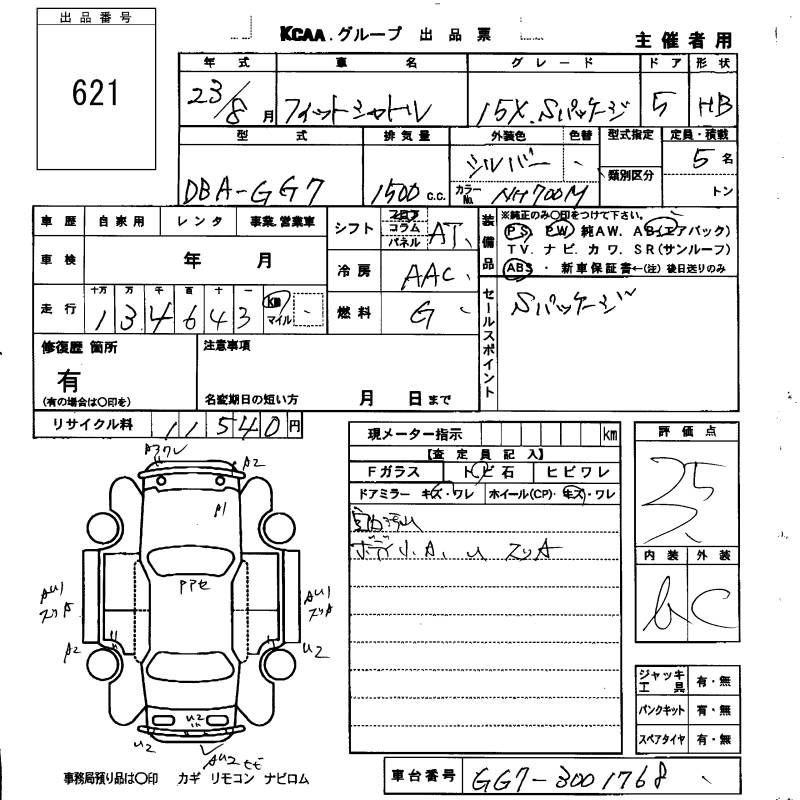 出品番号
621
KCAA.グループ 出品票
主催者用
年式 車名 グレード ドア 形状
23/8月 フィットシャトル 15X.Sパッケージ 5 HB
型式 排気量 外装色 色替 型式指定 定員・積載
DBA-GG7 1500 c.c. シルバー 類別区分 5名
カラーNo. NH700M トン
車歴 自家用 レンタ 事業.営業車
シフト フロア コラム パネル AT
装備品
※純正のみ〇印をつけて下さい。
PS PW 純AW. AB(エアバッグ)
TV. ナビ. カワ. SR(サンルーフ)
ABS ・ 新車保証書←(注) 後日送りのみ
車検 年 月
冷房 AAC
走行 十万 万 千 百 十 一
1 3 4 6 4 3 km マイル
燃料 G
セールスポイント
Sパッケージ
修復歴 箇所
有
(有の場合は〇印を)
注意事項
名変期日の短い方 月 日まで
リサイクル料 11540円
現メーター指示 km
【査定員記入】
Fガラス トビ石 ヒビワレ
ドアミラー キズ・ワレ ホイール(CP)・キズ・ワレ
ボディ小A. U スリA
評価点
内装 外装
b C
A3ワレ
A2
A1
Pアセ
AU1
スリA
AU1
スリA
A2
U2
U2
U2
AU2
ジャッキ工具 有・無
パンクキット 有・無
スペアタイヤ 有・無
事務局預り品は〇印 カギ リモコン ナビロム
車台番号 GG7-3001768